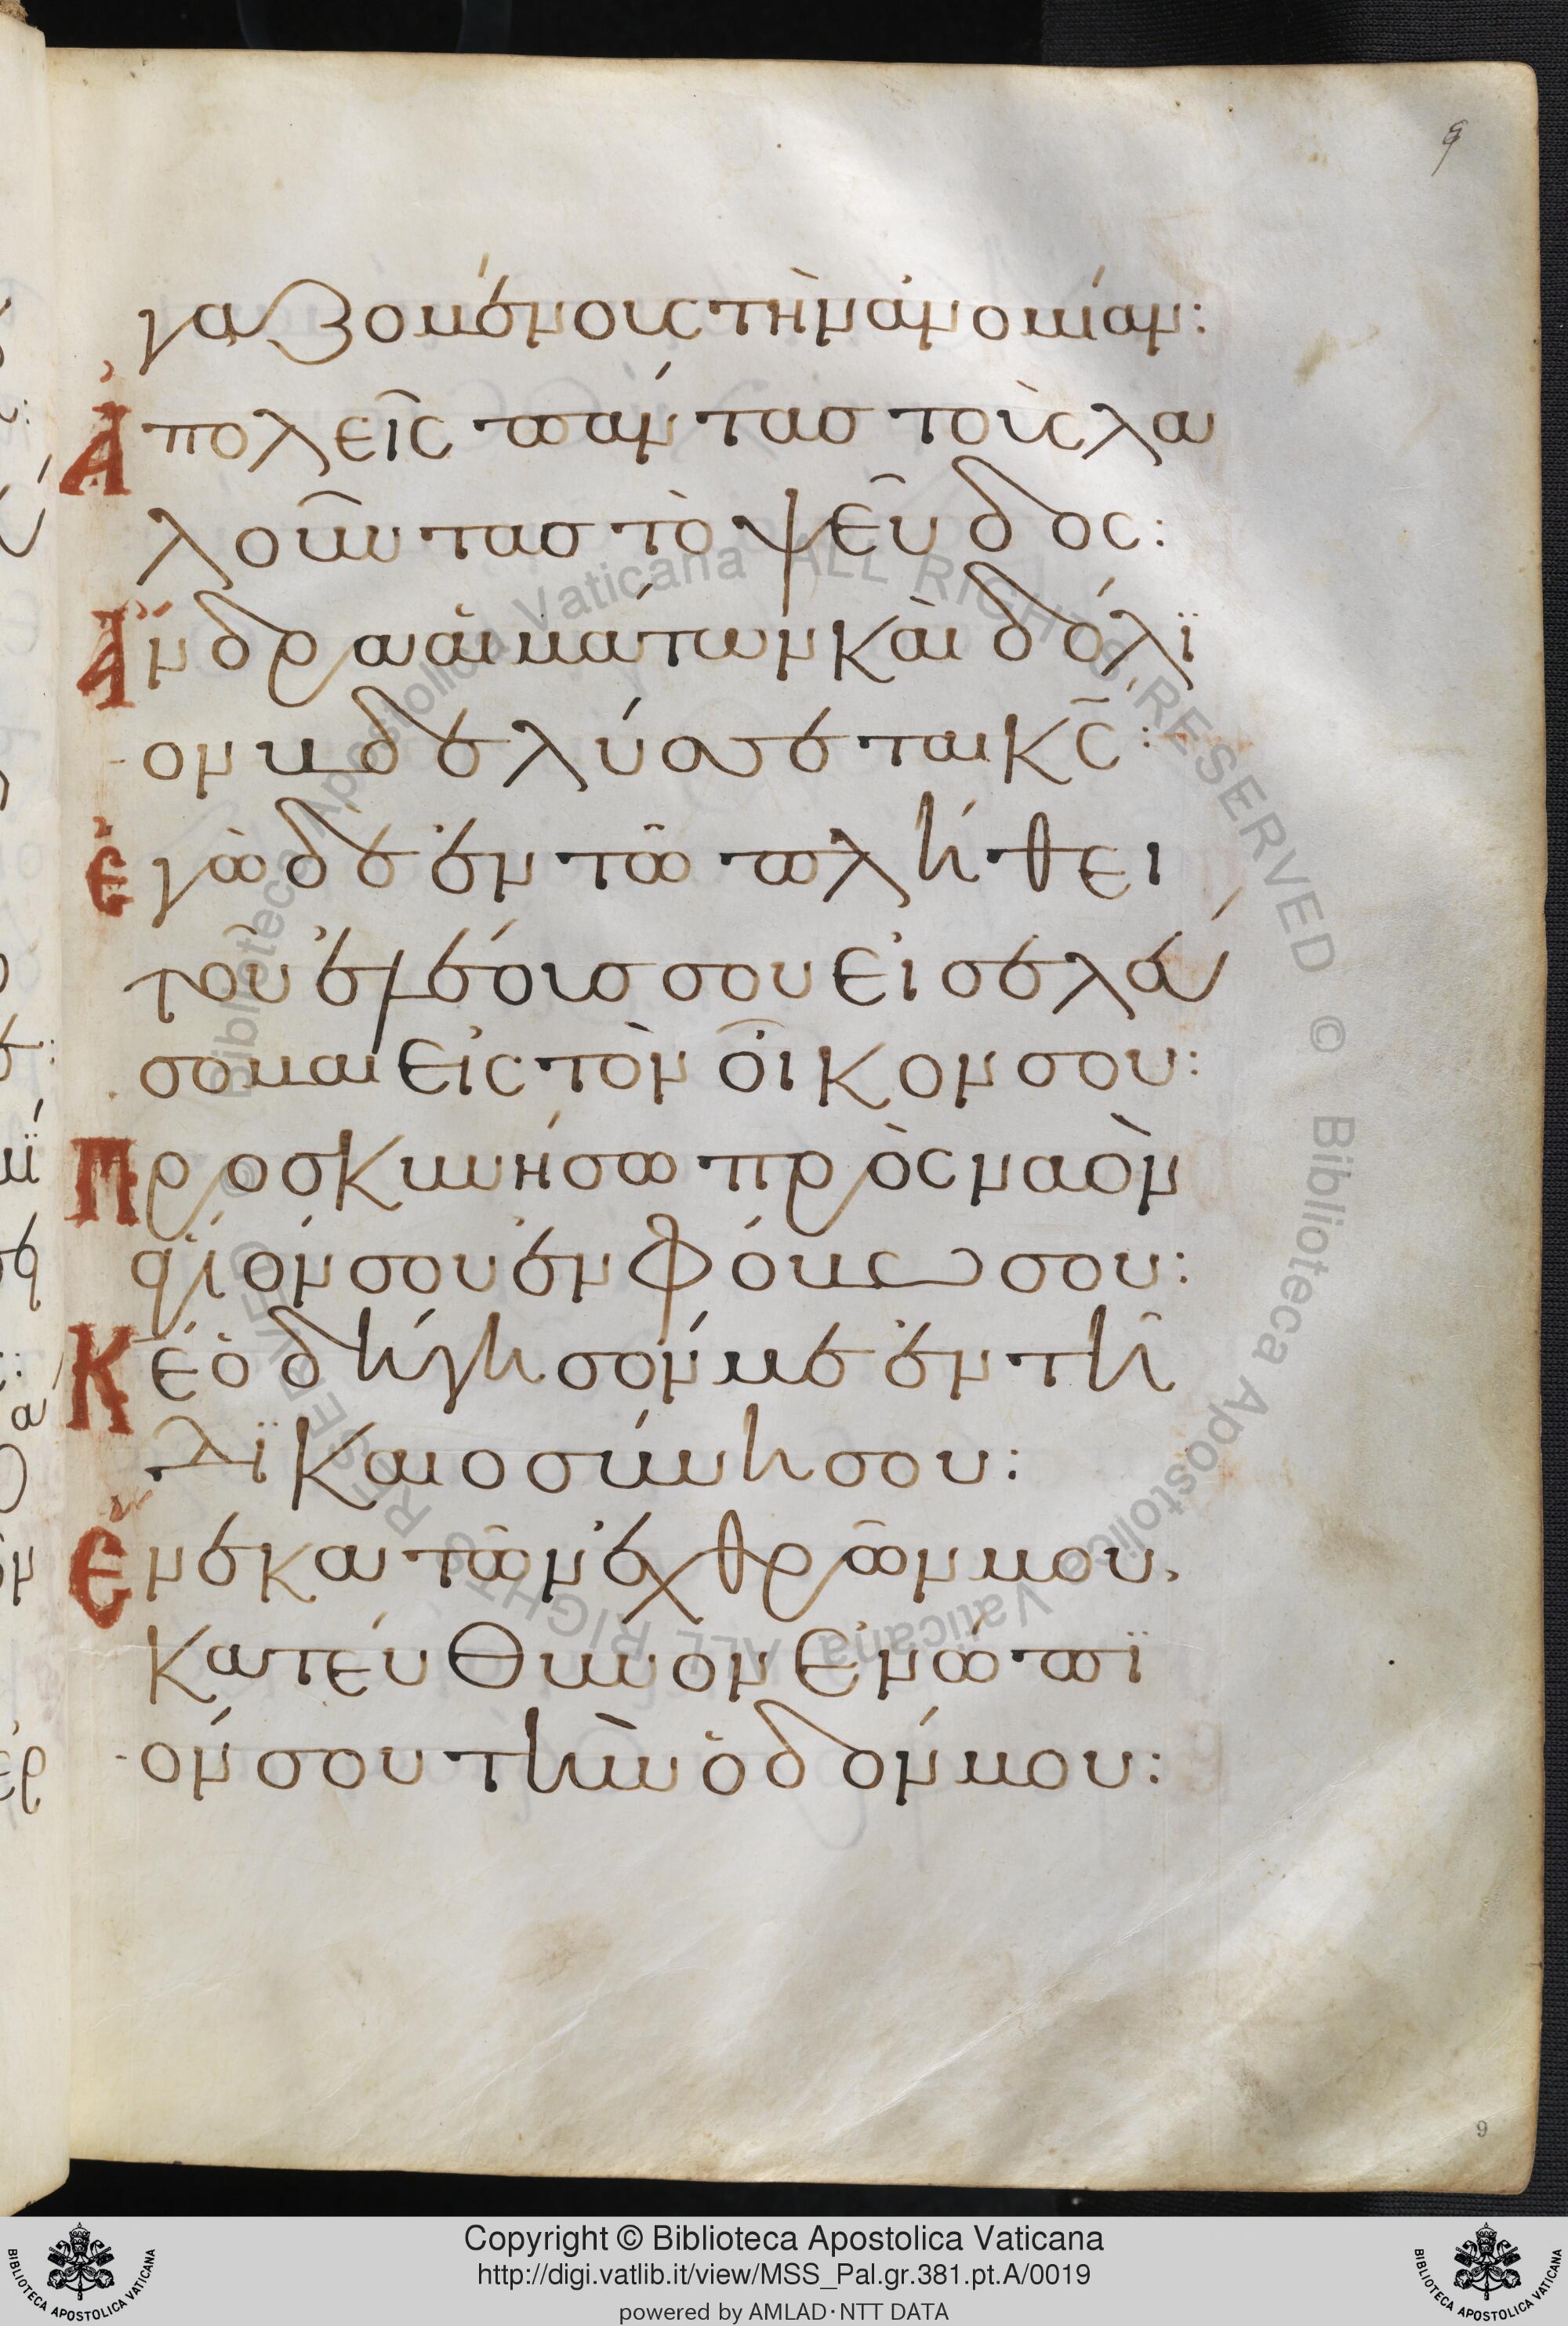 9
γαζομένους τὴν ἀνομίαν:
Ἀπολεῖς πάντας τοὺς λα
λοῦντας τὸ ψεῦδος:
Ἄνδρα αἱμάτων καὶ δόλϊ
ον βδελύσσεται κ̅ς̅:
Ἐγὼ δὲ ἐν τῶ πλήθει
τοῦ ἐλέους σου εἰσελεύ
σομαι εἰς τὸν οἶκον σου:
Προσκυνήσω πρὸς ναὸν
ἅγιόν σου ἐν φόβω σου:
Κ̅ε̅ ὁδήγησόν με ἐν τῆ
δϊκαιοσύνη σου:
Ἕνεκα τῶν ἐχθρῶν μου,
κατεύθυνον ἐνώπϊ
όν σου τὴν ὁδόν μου:
9
Biblioteca Apostolica Vaticana ALL RIGHTS RESERVED © Biblioteca Apostolica Vaticana ALL RIGHTS RESERVED ©
Copyright © Biblioteca Apostolica Vaticana
http://digi.vatlib.it/view/MSS_Pal.gr.381.pt.A/0019
powered by AMLAD·NTT DATA
BIBLIOTECA APOSTOLICA VATICANA
BIBLIOTECA APOSTOLICA VATICANA